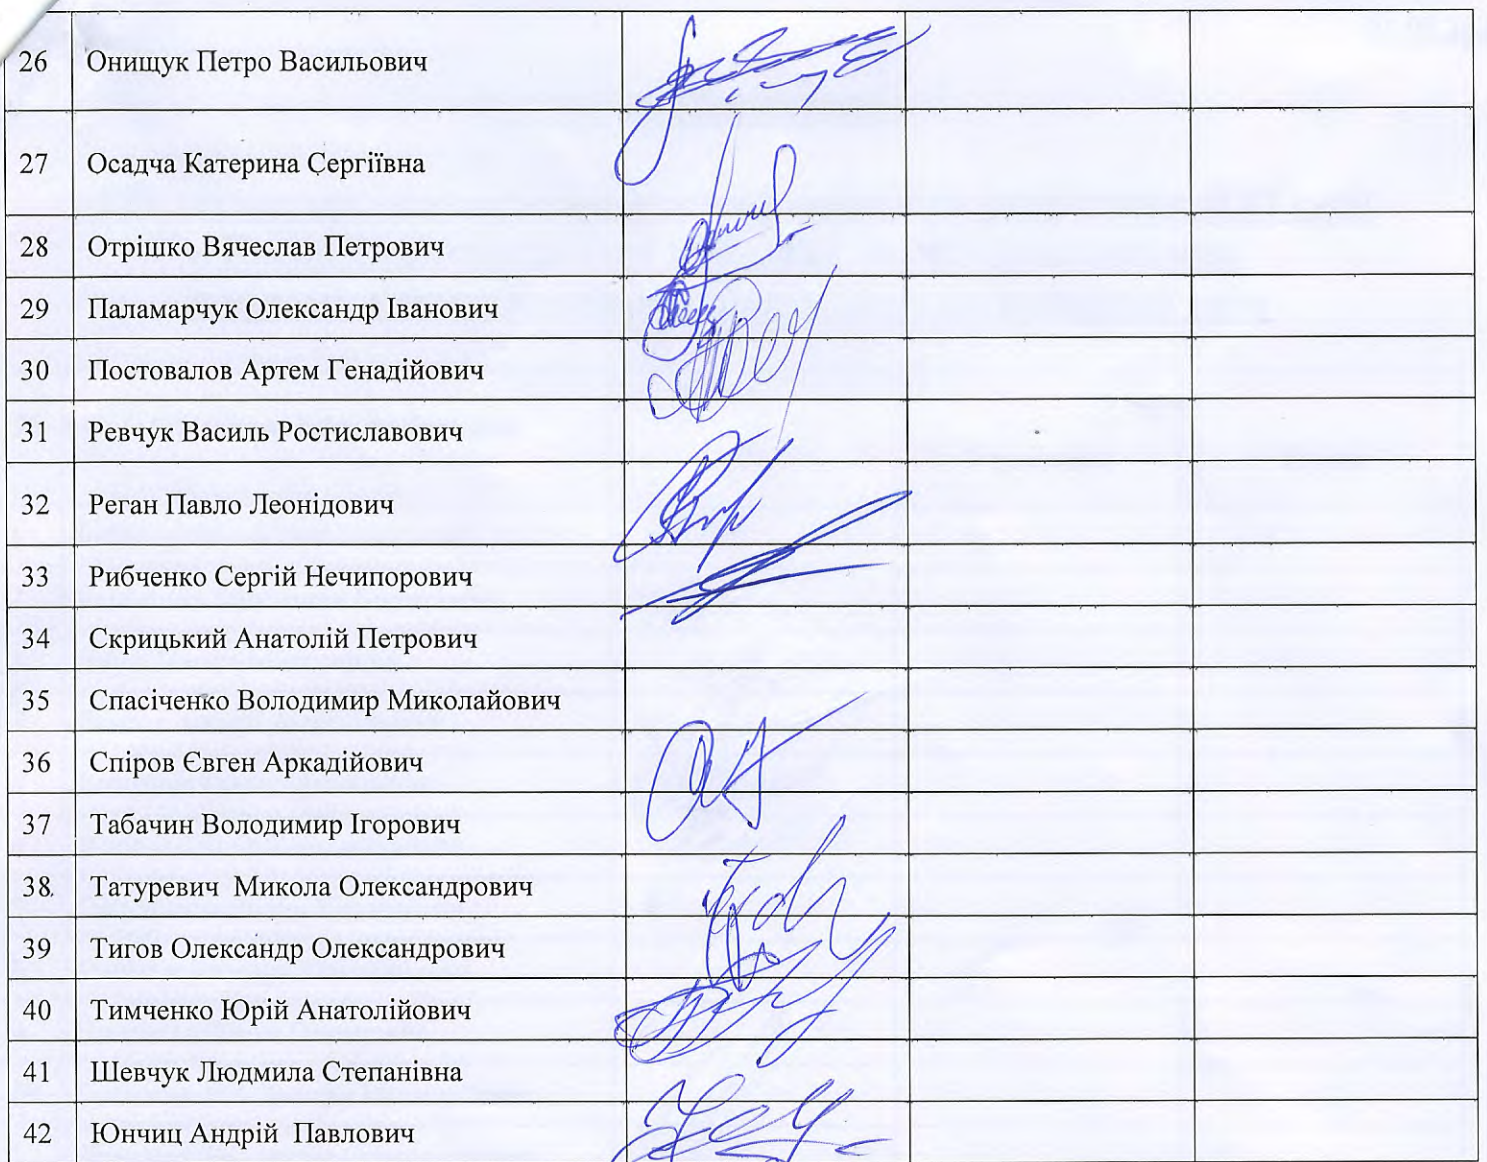 26 Онищук Петро Васильович
27 Осадча Катерина Сергіївна
28 Отрішко Вячеслав Петрович
29 Паламарчук Олександр Іванович
30 Постовалов Артем Генадійович
31 Ревчук Василь Ростиславович
32 Реган Павло Леонідович
33 Рибченко Сергій Нечипорович
34 Скрицький Анатолій Петрович
35 Спасіченко Володимир Миколайович
36 Спіров Євген Аркадійович
37 Табачин Володимир Ігорович
38 Татуревич Микола Олександрович
39 Тигов Олександр Олександрович
40 Тимченко Юрій Анатолійович
41 Шевчук Людмила Степанівна
42 Юнчиц Андрій Павлович